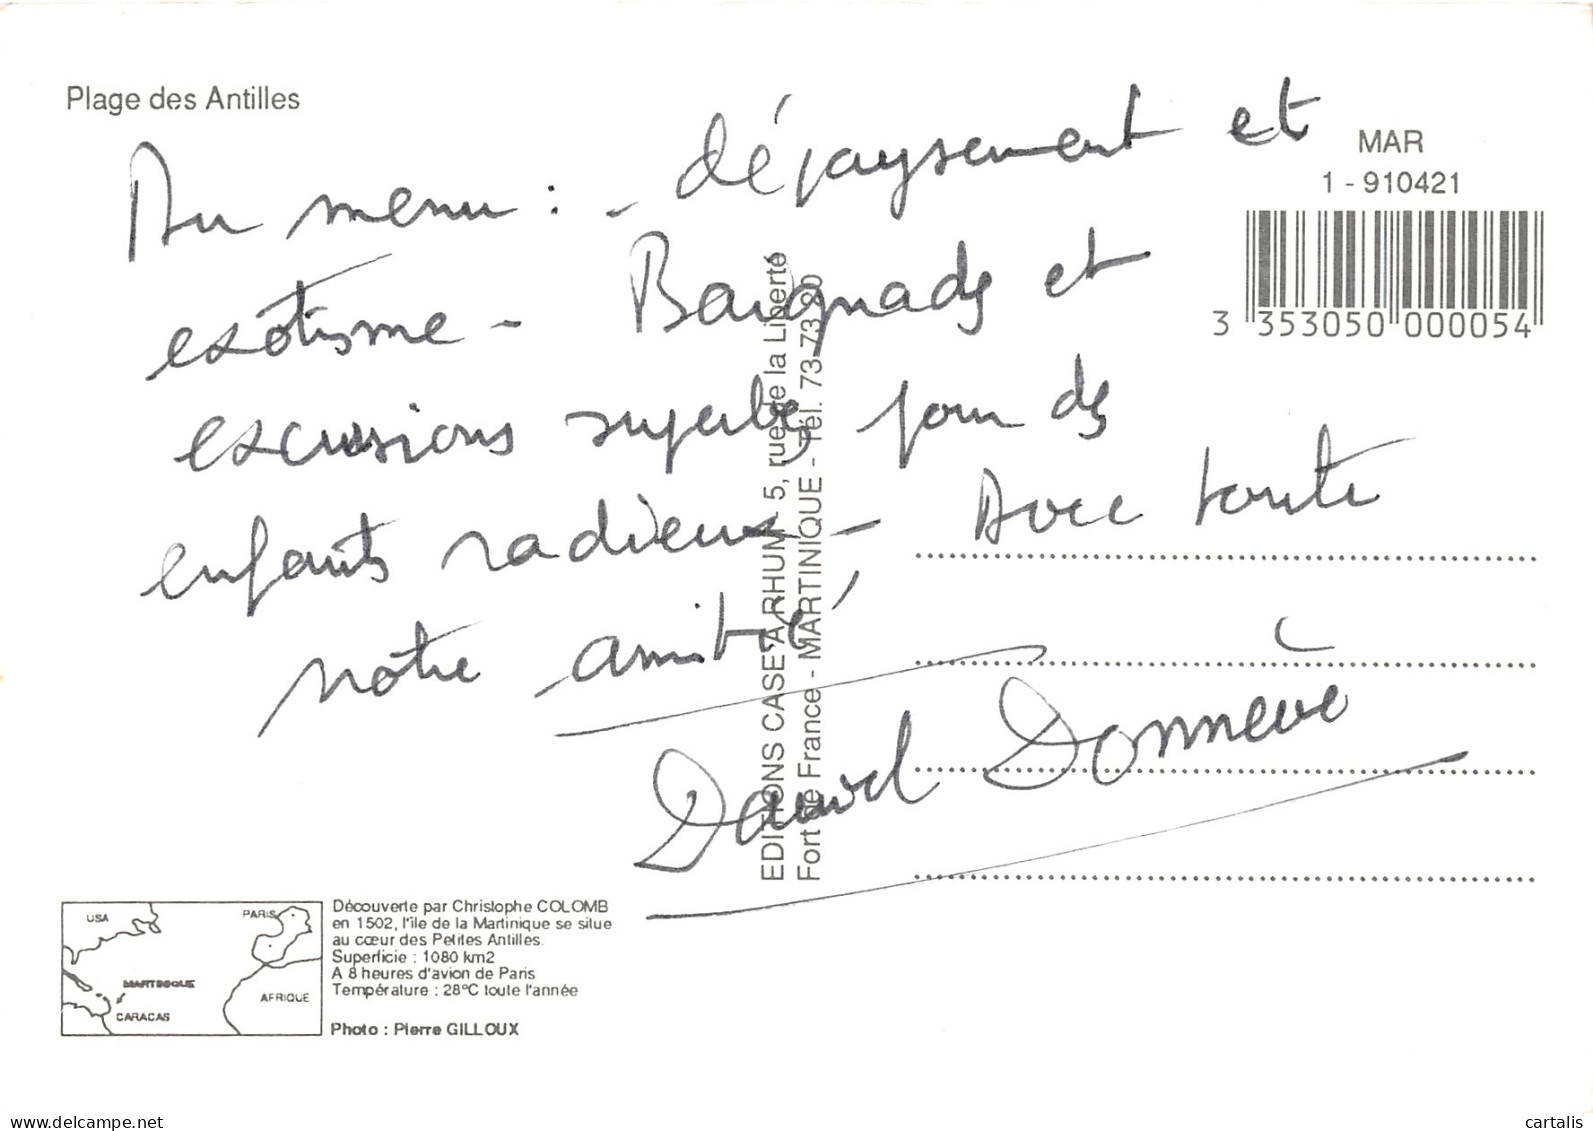 Plage des Antilles
Au menu : - dépaysement et
exotisme - Baignades et
excursions superbes pour des
enfants radieux - Avec toute
notre amitié
Daniel
MAR
1 - 910421
3 353050 000054
EDITIONS CASE A RHUM - 5, rue de la Liberté
Fort de France - MARTINIQUE - Tél. 73-73-20
USA
PARIS
MARTINIQUE
CARACAS
AFRIQUE
Découverte par Christophe COLOMB
en 1502, l'île de la Martinique se situe
au cœur des Petites Antilles.
Superficie : 1080 km2
A 8 heures d'avion de Paris
Température : 28°C toute l'année
Photo : Pierre GILLOUX
delcampe.net
cartalis